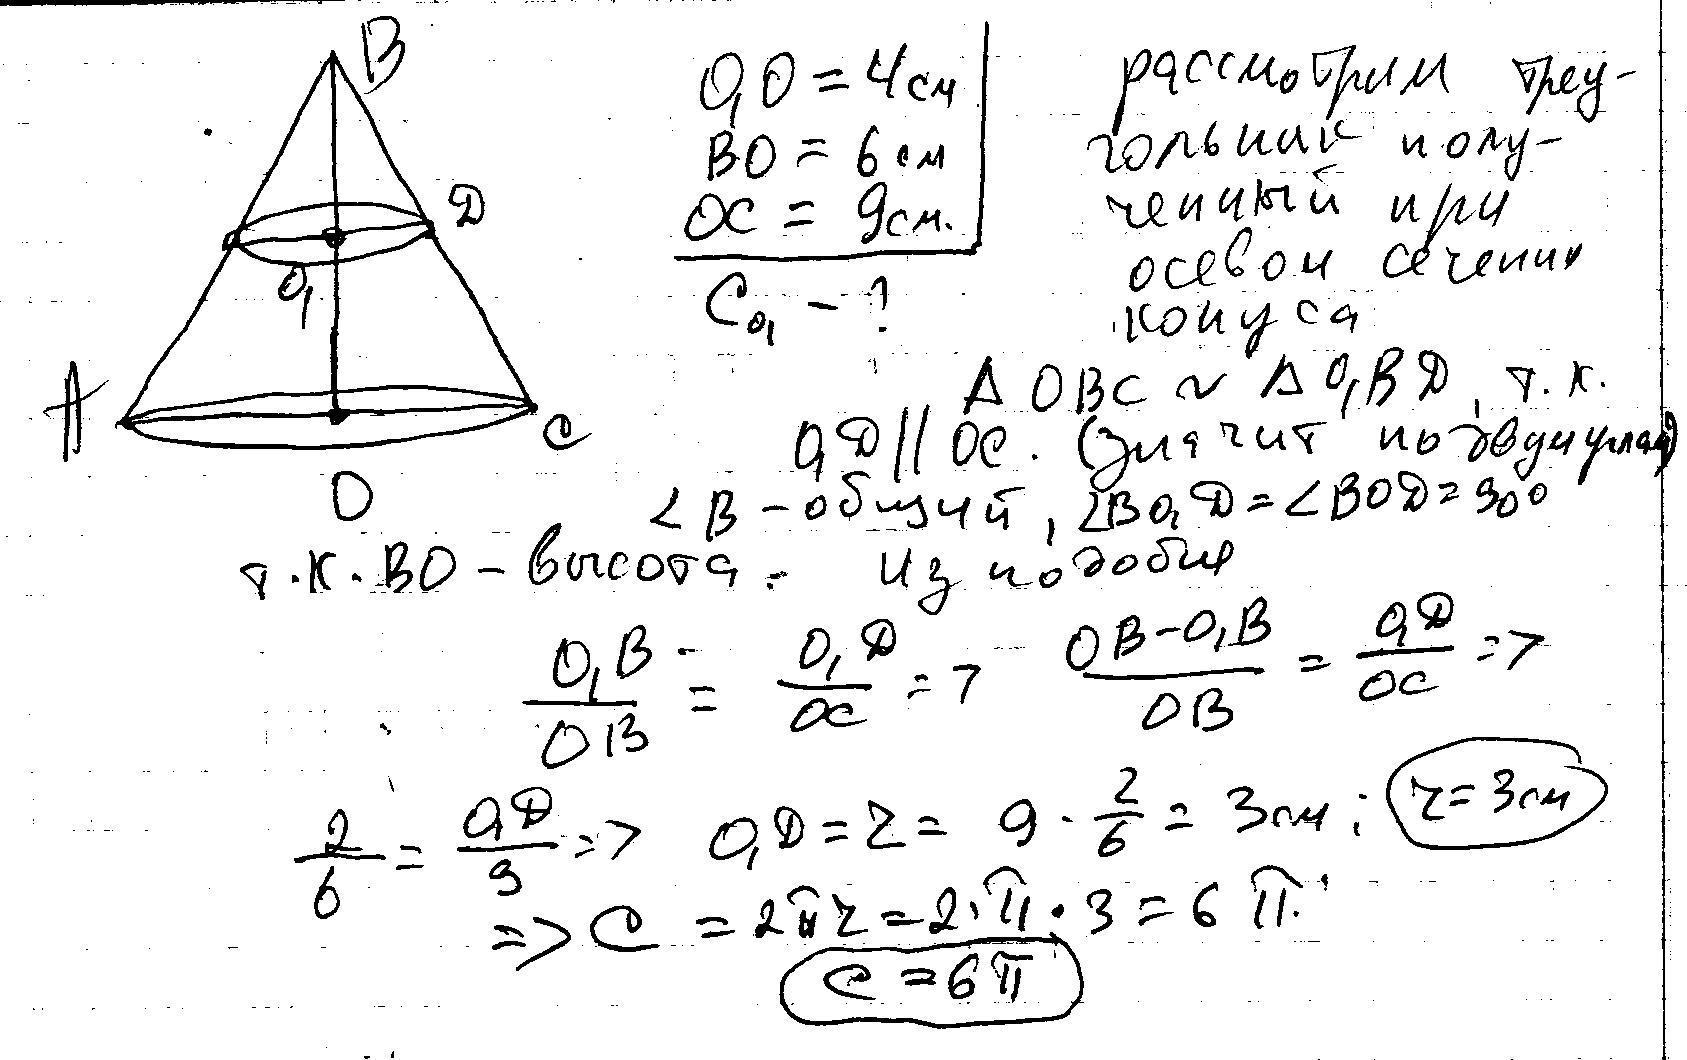 B
D
O₁
A
C
O
O₁O = 4 см
BO = 6 см
OC = 9 см.
C₀₁ - ?
рассмотрим треу-
гольник полу-
ченный при
осевом сечении
конуса
Δ OBC ~ Δ O₁BD, т.к.
O₁D || OC. (значит по двум углам)
∠B - общий, ∠BO₁D = ∠BOD = 90°
т.к. BO - высота. Из подобия
O₁B / OB = O₁D / OC => OB - O₁B / OB = O₁D / OC =>
2/6 = O₁D / 9 => O₁D = r = 9 · 2/6 = 3 см; r = 3 см
=> C = 2πr = 2·π·3 = 6π.
C = 6π